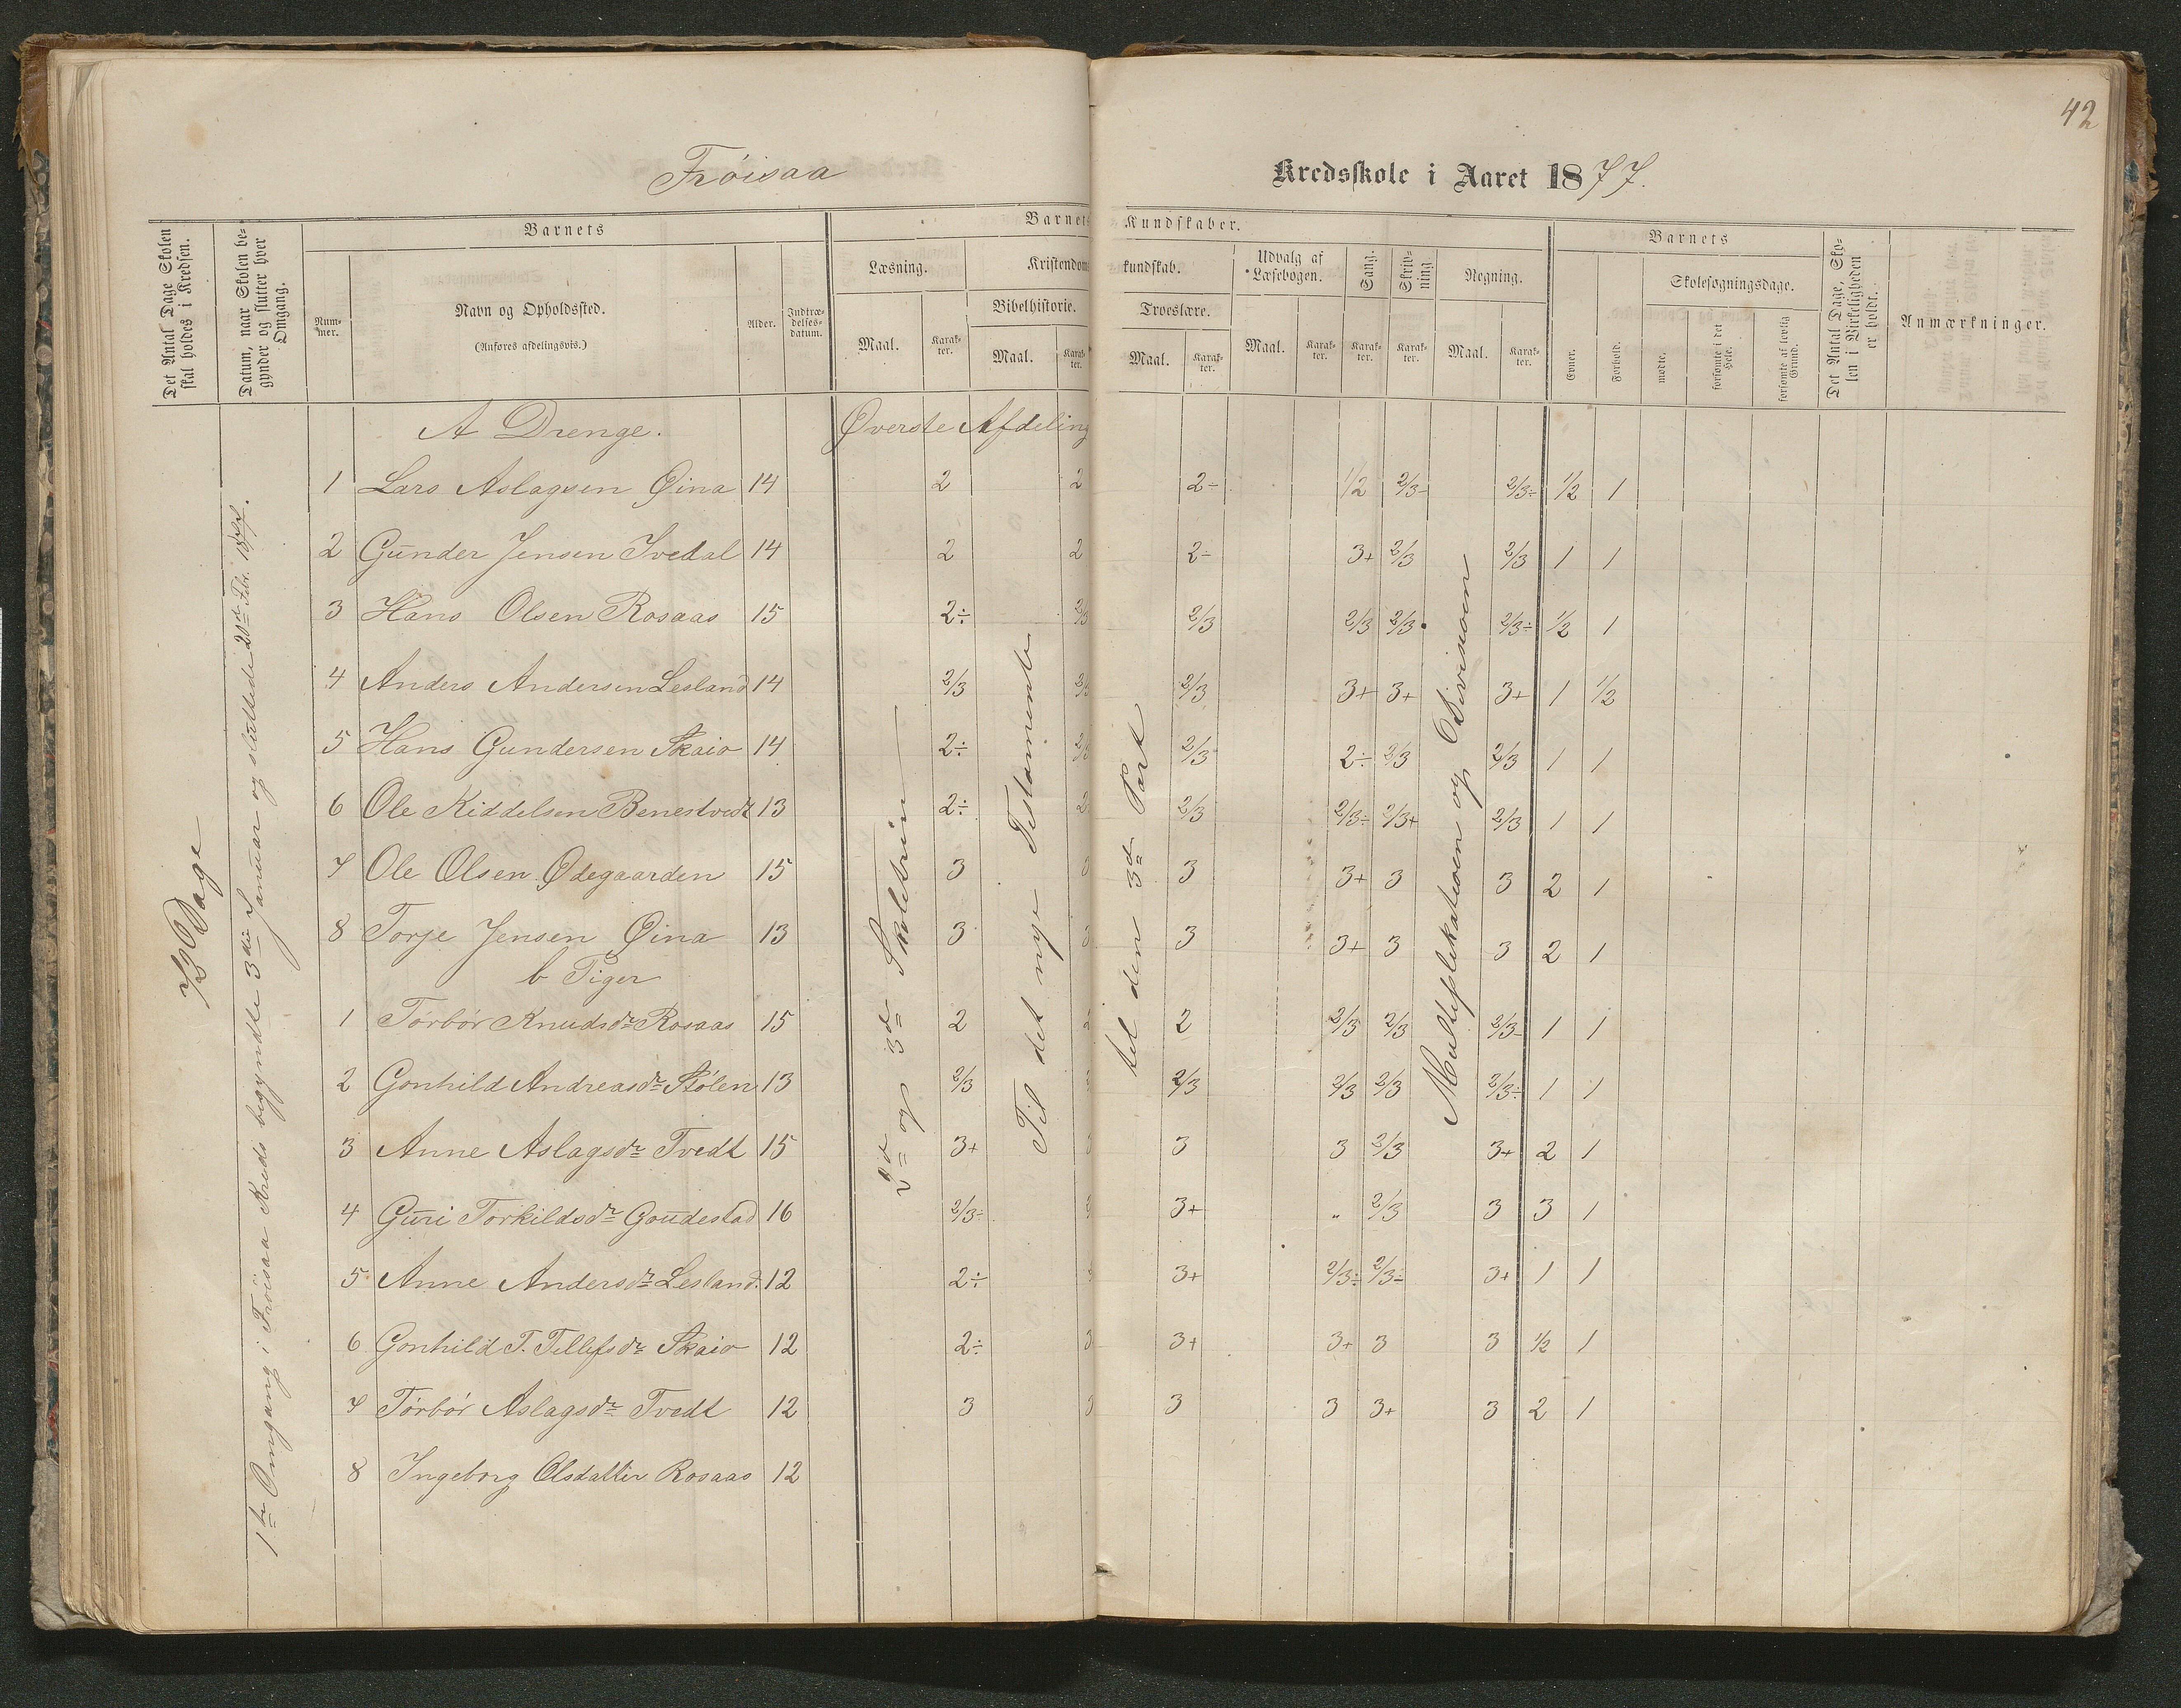 42
Fröisaa Kredsskole i Aaret 1877.
Det Antal Dage Skolen skal holdes i Kredsen.
Datum, naar Skolen begynder og slutter hver Omgang.
Barnets
Nummer.
Navn og Opholdssted.
(Anføres afdelingsvis.)
Alder.
Indtrædelsesdatum.
Barnets Kundskaber.
Læsning.
Maal. Karakter.
Kristendomskundskab.
Bibelhistorie.
Maal. Karakter.
Troeslære.
Maal. Karakter.
Udvalg af Læsebogen.
Maal. Karakter.
Sang.
Karakter.
Skrivning
Karakter.
Regning.
Maal. Karakter.
Barnets
Evner.
Forhold.
Skolesøgningsdage.
mødte.
forsømte i det Hele.
forsømte af lovlig Grund.
Det Antal Dage, Skolen i Virkeligheden er holdt.
Anmærkninger.
72 Dage
1ste Omgang i Fröisaa Kreds begyndte 3die Januar og sluttede 20de Febr. 1877.
A Drenge. Øverste Afdeling
2d og 3d Skoletrin
Til det nye Testamente
til den 3d Part
Multiplikationen og Divisionen
1 Lars Aslagsen Øina 14 2 2 2- 1/2 2/3- 2/3÷ 1/2 1
2 Gunder Jensen Ivedal 14 2 2 2- 3+ 2/3 2/3 1 1
3 Hans Olsen Rosaas 15 2÷ 2/3 2/3 2/3 2/3 2/3÷ 1/2 1
4 Anders Andersen Lesland 14 2/3 2/3 2/3 3+ 3+ 3+ 1 1/2
5 Hans Gundersen Skaio 14 2÷ 2/3 2/3 2÷ 2/3 2/3 1 1
6 Ole Kiddelsen Benestvedt 13 2÷ 2 2/3 2/3÷ 2/3+ 2/3 1 1
7 Ole Olsen Ødegaarden 15 3 3 3 3+ 3 3 2 1
8 Torje Jensen Øina 13 3 3 3 3+ 3 3 2 1
b Piger
1 Törbör Knudsdr Rosaas 15 2 2 2 2/3 2/3 2/3- 1 1
2 Gonhild Andreasdr Stölen 13 2/3 2/3 2/3 2/3 2/3÷ 1 1
3 Anne Aslagsdr Tvedt 15 3+ 3 3 3 2/3 3+ 2 1
4 Guri Torkildsdr Goudestad 16 2/3÷ 3+ " 2/3 3 3 1
5 Anne Andersdr Lesland 12 2÷ 3 3+ 2/3÷ 2/3÷ 3+ 1 1
6 Gonhild T. Tellefsdr Skaio 12 2÷ 3 3+ 3+ 3 3 1/2 1
7 Törbör Aslagsdr Tvedt 12 3 3 3 3 3+ 3 2 1
8 Ingeborg Olsdatter Rosaas 12